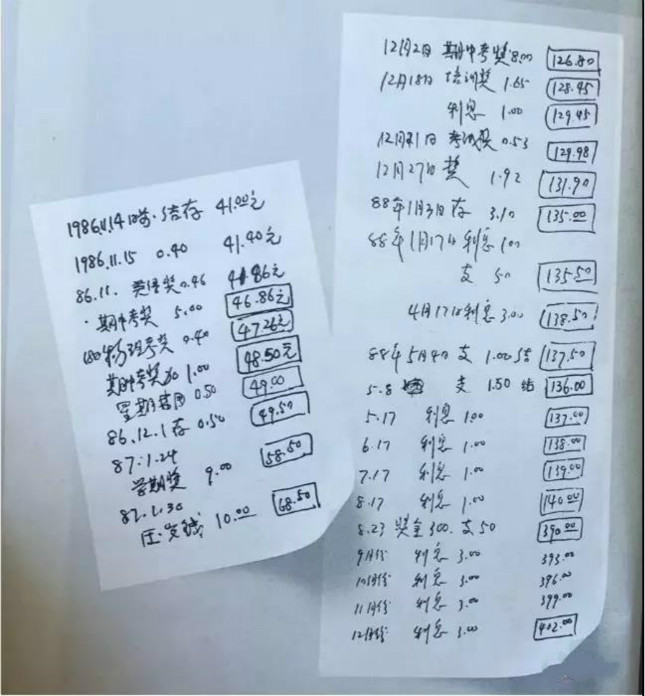 1986.11.14日前.结存 41.00元
1986.11.15 0.40 41.40元
86.11. 英语奖0.46 41.86元
期中考奖 5.00 46.86元
物理考奖 0.40 47.26元
期中考奖 1.00 48.50元
星期 0.50 49.00
86.12.1存 0.50 49.50
87.1.24
学期奖 9.00 58.50
87.1.30
压岁钱 10.00 68.50
12月2日 期中考奖8.00 126.80
12月18日 培训奖 1.65 128.45
利息 1.00 129.45
12月21日 考试奖 0.53 129.98
12月27日奖 1.92 131.90
88年1月3日存 3.10 135.00
88年1月17日利息 1.00
支 50 135.50
4月17日利息 3.00 138.50
88年5月4日 支 1.00结 137.50
5.8 支 1.50 结 136.00
5.17 利息 1.00 137.00
6.17 利息 1.00 138.00
7.17 利息 1.00 139.00
8.17 利息 1.00 140.00
8.23 奖金300. 支50 390.00
9月份 利息 3.00 393.00
10月份 利息 3.00 396.00
11月份 利息 3.00 399.00
12月份 利息 3.00 402.00